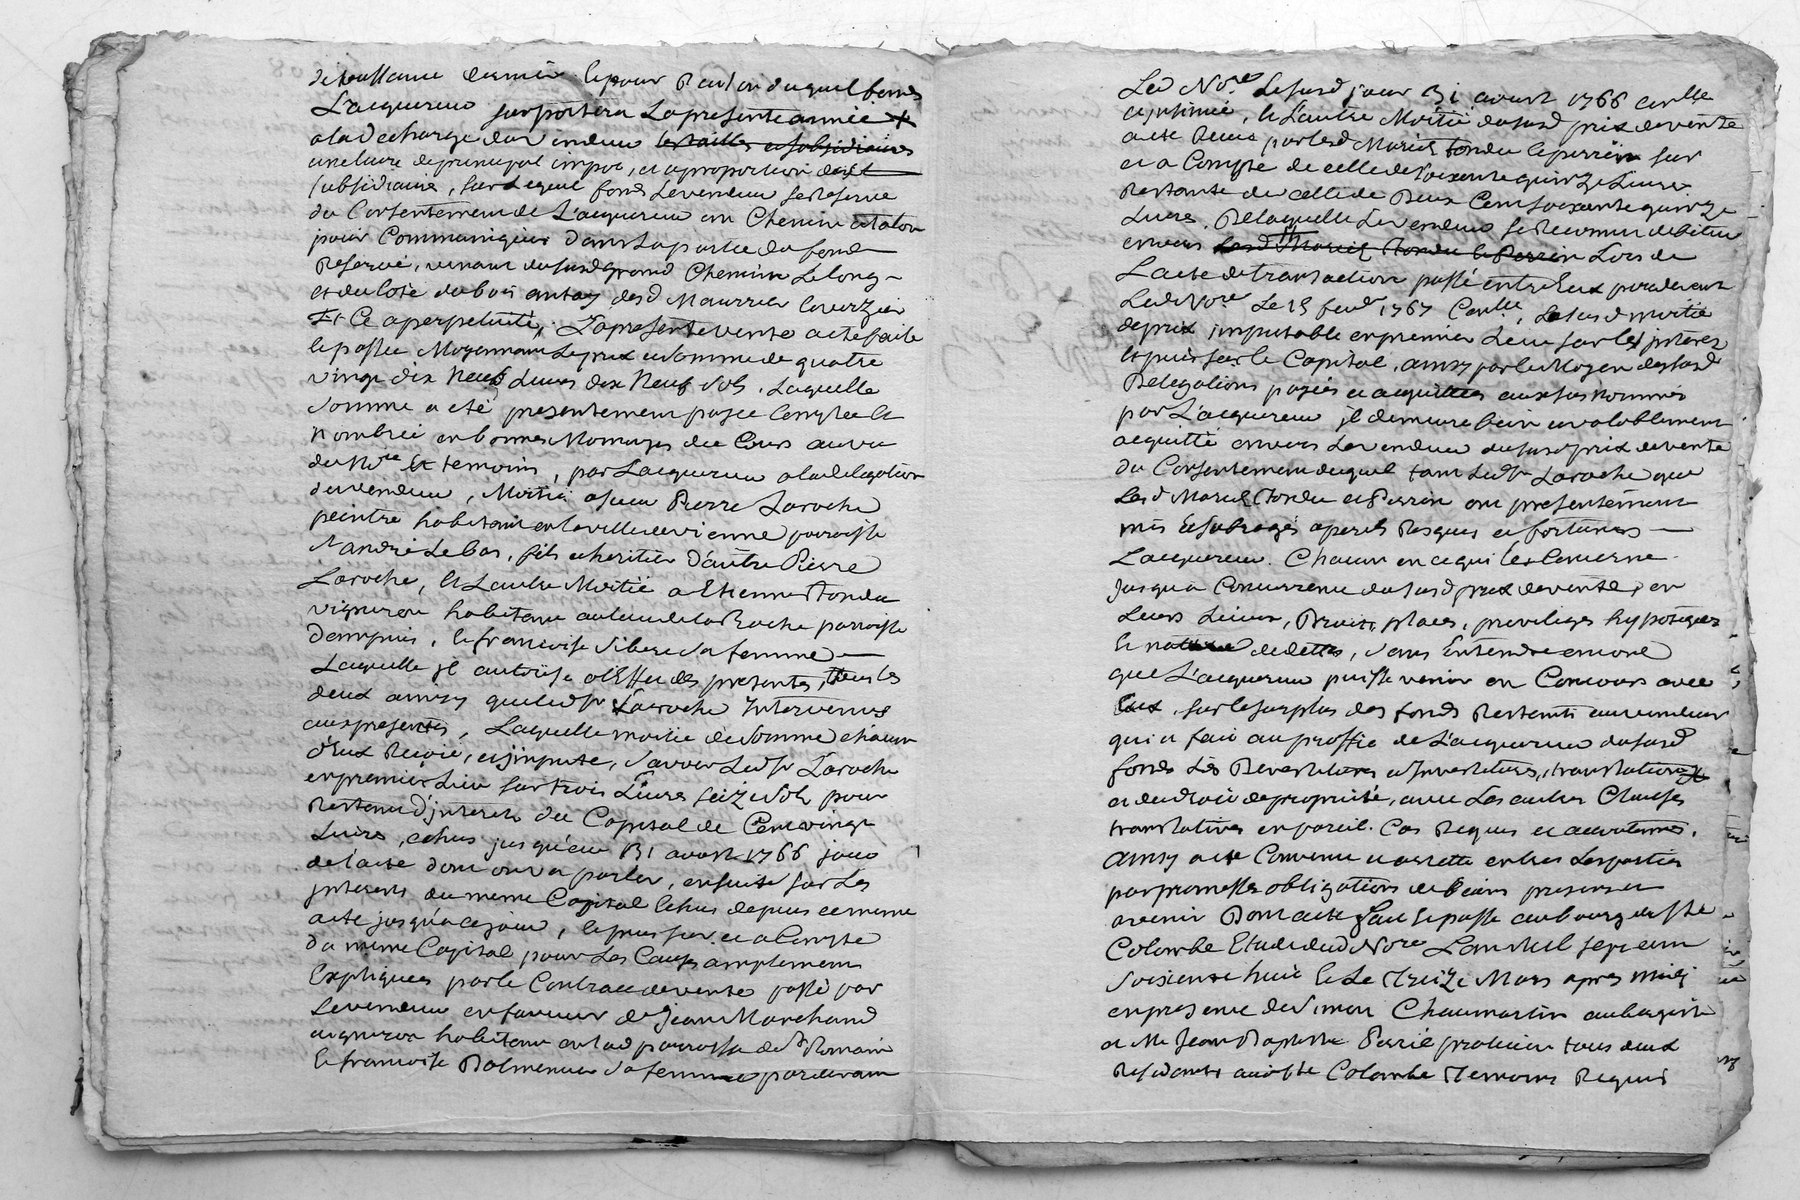 dernier, le pour Raison duquel fonds
L'acquereur supportera La presente année
a la decharge du vendeur les tailles et subsidiaires
une livre de principal impot, et a proportion
subsidiaire, sur Lequel fonds Le vendeur se Reserve
du Consentement de L'acquereur un Chemin a talon
pour Communiquer dans La partie du fonds
Reservé, venant du susd grand Chemin Le long
et du coté du bois des d
Et Ce a perpetuité, La presente vente a eté faite
le passée Moyennant Le prix et Somme de quatre
vingt dix Neuf Livres dix Neuf Sols. Laquelle
Somme a eté presentement payée Comptée et
Nombrée en bonnes Monoyes du Cours au vu
du Nre Et temoins, par Lacquereur a la delegation
du vendeur, Moitié a sieur Pierre Laroche
peintre habitant en la ville de vienne parroisse
St andré Le bas, fils et heritier D'autre Pierre
Laroche, et Lautre Moitié a Etienne Tondu
vigneron habitant au lieu de la Roche parroisse
Dampuis, le francoise Sibere Sa femme
Laquelle jl autorise a l'Effet des presentes, tous les
deux ainsy que led Sr Laroche Intervenus
aux presentes, Laquelle moitié de Somme chacun
d'eux Recoit, et jmpute, Savoir Led Sr Laroche
en premier Lieu Sur trois Livres Seize Sols pour
Restant d'jnterets du Capital de Cent vingt
Livres, echus jusqu'au 31 aoust 1766 jour
de l'acte dont on va parler, ensuite Sur Les
jnterets du meme Capital Echus depuis ce meme
acte jusqu'a ce jour, le puis sur et a Compte
du meme Capital pour Les Causes amplement
Expliquées par le Contract de vente passé par
Le vendeur en faveur de Jean Marchand
vigneron habitant en lad parroisse de St Romain
le francoise Sa femme pardevant
Led Nore Le susd jour 31 aoust 1766
, le Lautre Moitié du susd prix de vente
a eté Recue par lesd Mariés Tondu le perrein sur
et a Compte de celle de Soixante quinze Livres
Restante de celle de Deux Cent Soixante quinze
Livres. De Laquelle Le vendeur se Reconnut debiteur
envers Lesd Mariés Tondu le Perrin Lors de
Lacte de transaction passé entre Eux pardevant
Led Nore Le 15 fevr 1767 , Le susd moitié
de prix imputable en premier Lieu sur les jnterets
et puis sur le Capital, ainsy par le Moyen des susd
Delegations payées et acquittées aux sus nommés
par L'acquereur jl demeure bien et valablement
acquitté envers Le vendeur du susd prix de vente
du Consentement duquel tant Led Sr Laroche que
Lesd Mariés Tondu et Perrin ont presentement
mis et Subrogé a perils Risques et fortunes
Lacquereur. Chacun en ce qui les Concerne
jusqu'a Concurrence du susd prix de vente, en
Leurs Lieux, Droits, places, privileges hypoteques
Et nature de dettes, Sans Entendre encore
que L'acquereur puisse venir en Concours avec
Eux, sur le surplus des fonds Restants au vendeur
qui a fait au proffit de L'acquereur du susd
fonds Les Devestitures et Investitures, translation
et du droit de proprieté, avec Les autres Clauses
translatives en pareil Cas Requis et accoutumés.
Ainsy a eté Convenu et arretté entre Les parties
par promesses obligations de biens presens et
avenir Dont acte fait et passé au bourg de Ste
Colombe Etude dud Nore L'an Mil Sept cent
Soixante huit le Le Treize Mars apres Midi
en presence de Simon Chaumartin aubergiste
et Me Jean Baptiste Perié praticien tous deux
Residants aud Ste Colombe Temoins Requis